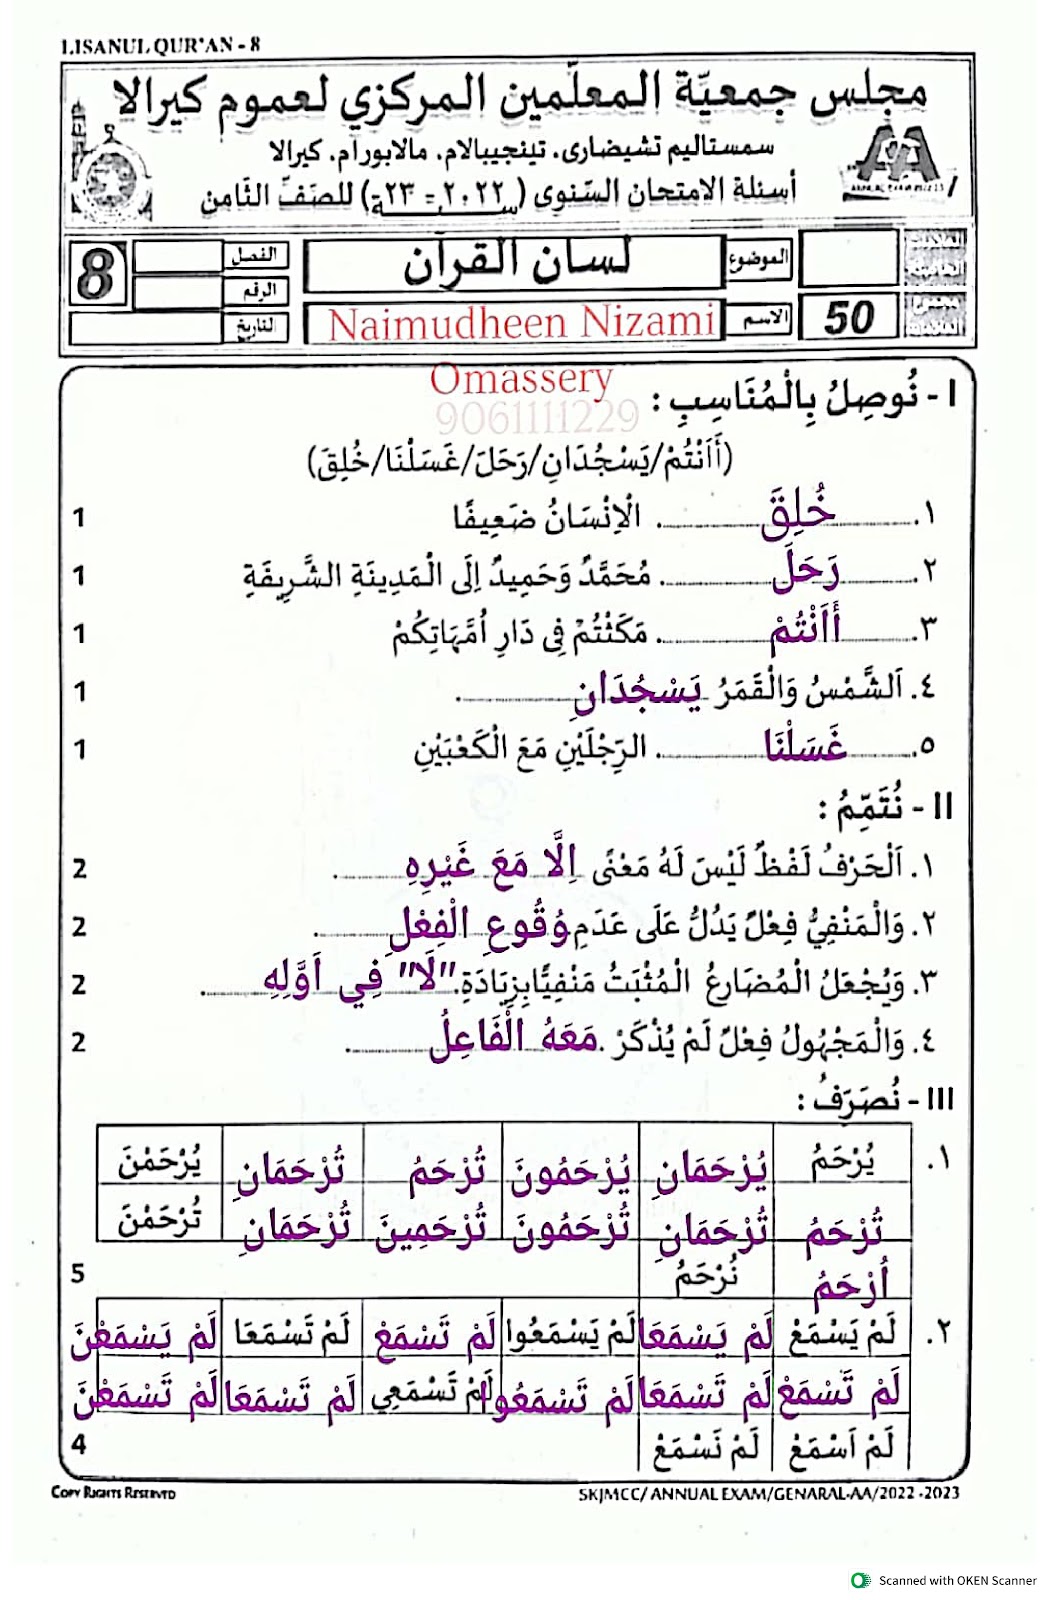 LISANUL QUR'AN - 8
مجلس جمعيّة المعلّمين المركزي لعموم كيرالا
سمستاليم تشيضارى. تينجيبالام. مالابورام. كيرالا
أسئلة الامتحان السّنوى (٢٠٢٢ = ٢٣) للصّفّ الثّامن
ANNUAL EXAM 2022-23
الموضوع لسان القرآن الفصل 8
الرقم
50 الاسم Naimudheen Nizami التاريخ
Omassery
9061111229
I - نُوصِلُ بِالْمُنَاسِبِ :
(أَاَنْتُمْ/يَسْجُدَانِ/رَحَلَ/غَسَلْنَا/خُلِقَ)
١. خُلِقَ الْاِنْسَانُ ضَعِيفًا 1
٢. رَحَلَ مُحَمَّدٌ وَحَمِيدٌ اِلَى الْمَدِينَةِ الشَّرِيفَةِ 1
٣. أَاَنْتُمْ مَكَثْتُمْ فِى دَارِ اُمَّهَاتِكُمْ 1
٤. اَلشَّمْسُ وَالْقَمَرُ يَسْجُدَانِ 1
٥. غَسَلْنَا الرِّجْلَيْنِ مَعَ الْكَعْبَيْنِ 1
II - نُتَمِّمُ :
١. اَلْحَرْفُ لَفْظٌ لَيْسَ لَهُ مَعْنًى اِلَّا مَعَ غَيْرِهِ 2
٢. وَالْمَنْفِيُّ فِعْلٌ يَدُلُّ عَلَى عَدَمِ وُقُوعِ الْفِعْلِ 2
٣. وَيُجْعَلُ الْمُضَارِعُ الْمُثْبَتُ مَنْفِيًّا بِزِيَادَةِ "لَا" فِي اَوَّلِهِ 2
٤. وَالْمَجْهُولُ فِعْلٌ لَمْ يُذْكَرْ مَعَهُ الْفَاعِلُ 2
III - نُصَرِّفُ :
١. يُرْحَمُ يُرْحَمَانِ يُرْحَمُونَ تُرْحَمُ تُرْحَمَانِ يُرْحَمْنَ
تُرْحَمُ تُرْحَمَانِ تُرْحَمُونَ تُرْحَمِينَ تُرْحَمَانِ تُرْحَمْنَ
اُرْحَمُ نُرْحَمُ 5
٢. لَمْ يَسْمَعْ لَمْ يَسْمَعَا لَمْ يَسْمَعُوا لَمْ تَسْمَعْ لَمْ تَسْمَعَا لَمْ يَسْمَعْنَ
لَمْ تَسْمَعْ لَمْ تَسْمَعَا لَمْ تَسْمَعُوا لَمْ تَسْمَعِي لَمْ تَسْمَعَا لَمْ تَسْمَعْنَ
لَمْ اَسْمَعْ لَمْ نَسْمَعْ 4
COPY RIGHTS RESERVTD SKJMCC/ ANNUAL EXAM/GENARAL-AA/2022-2023
Scanned with OKEN Scanner